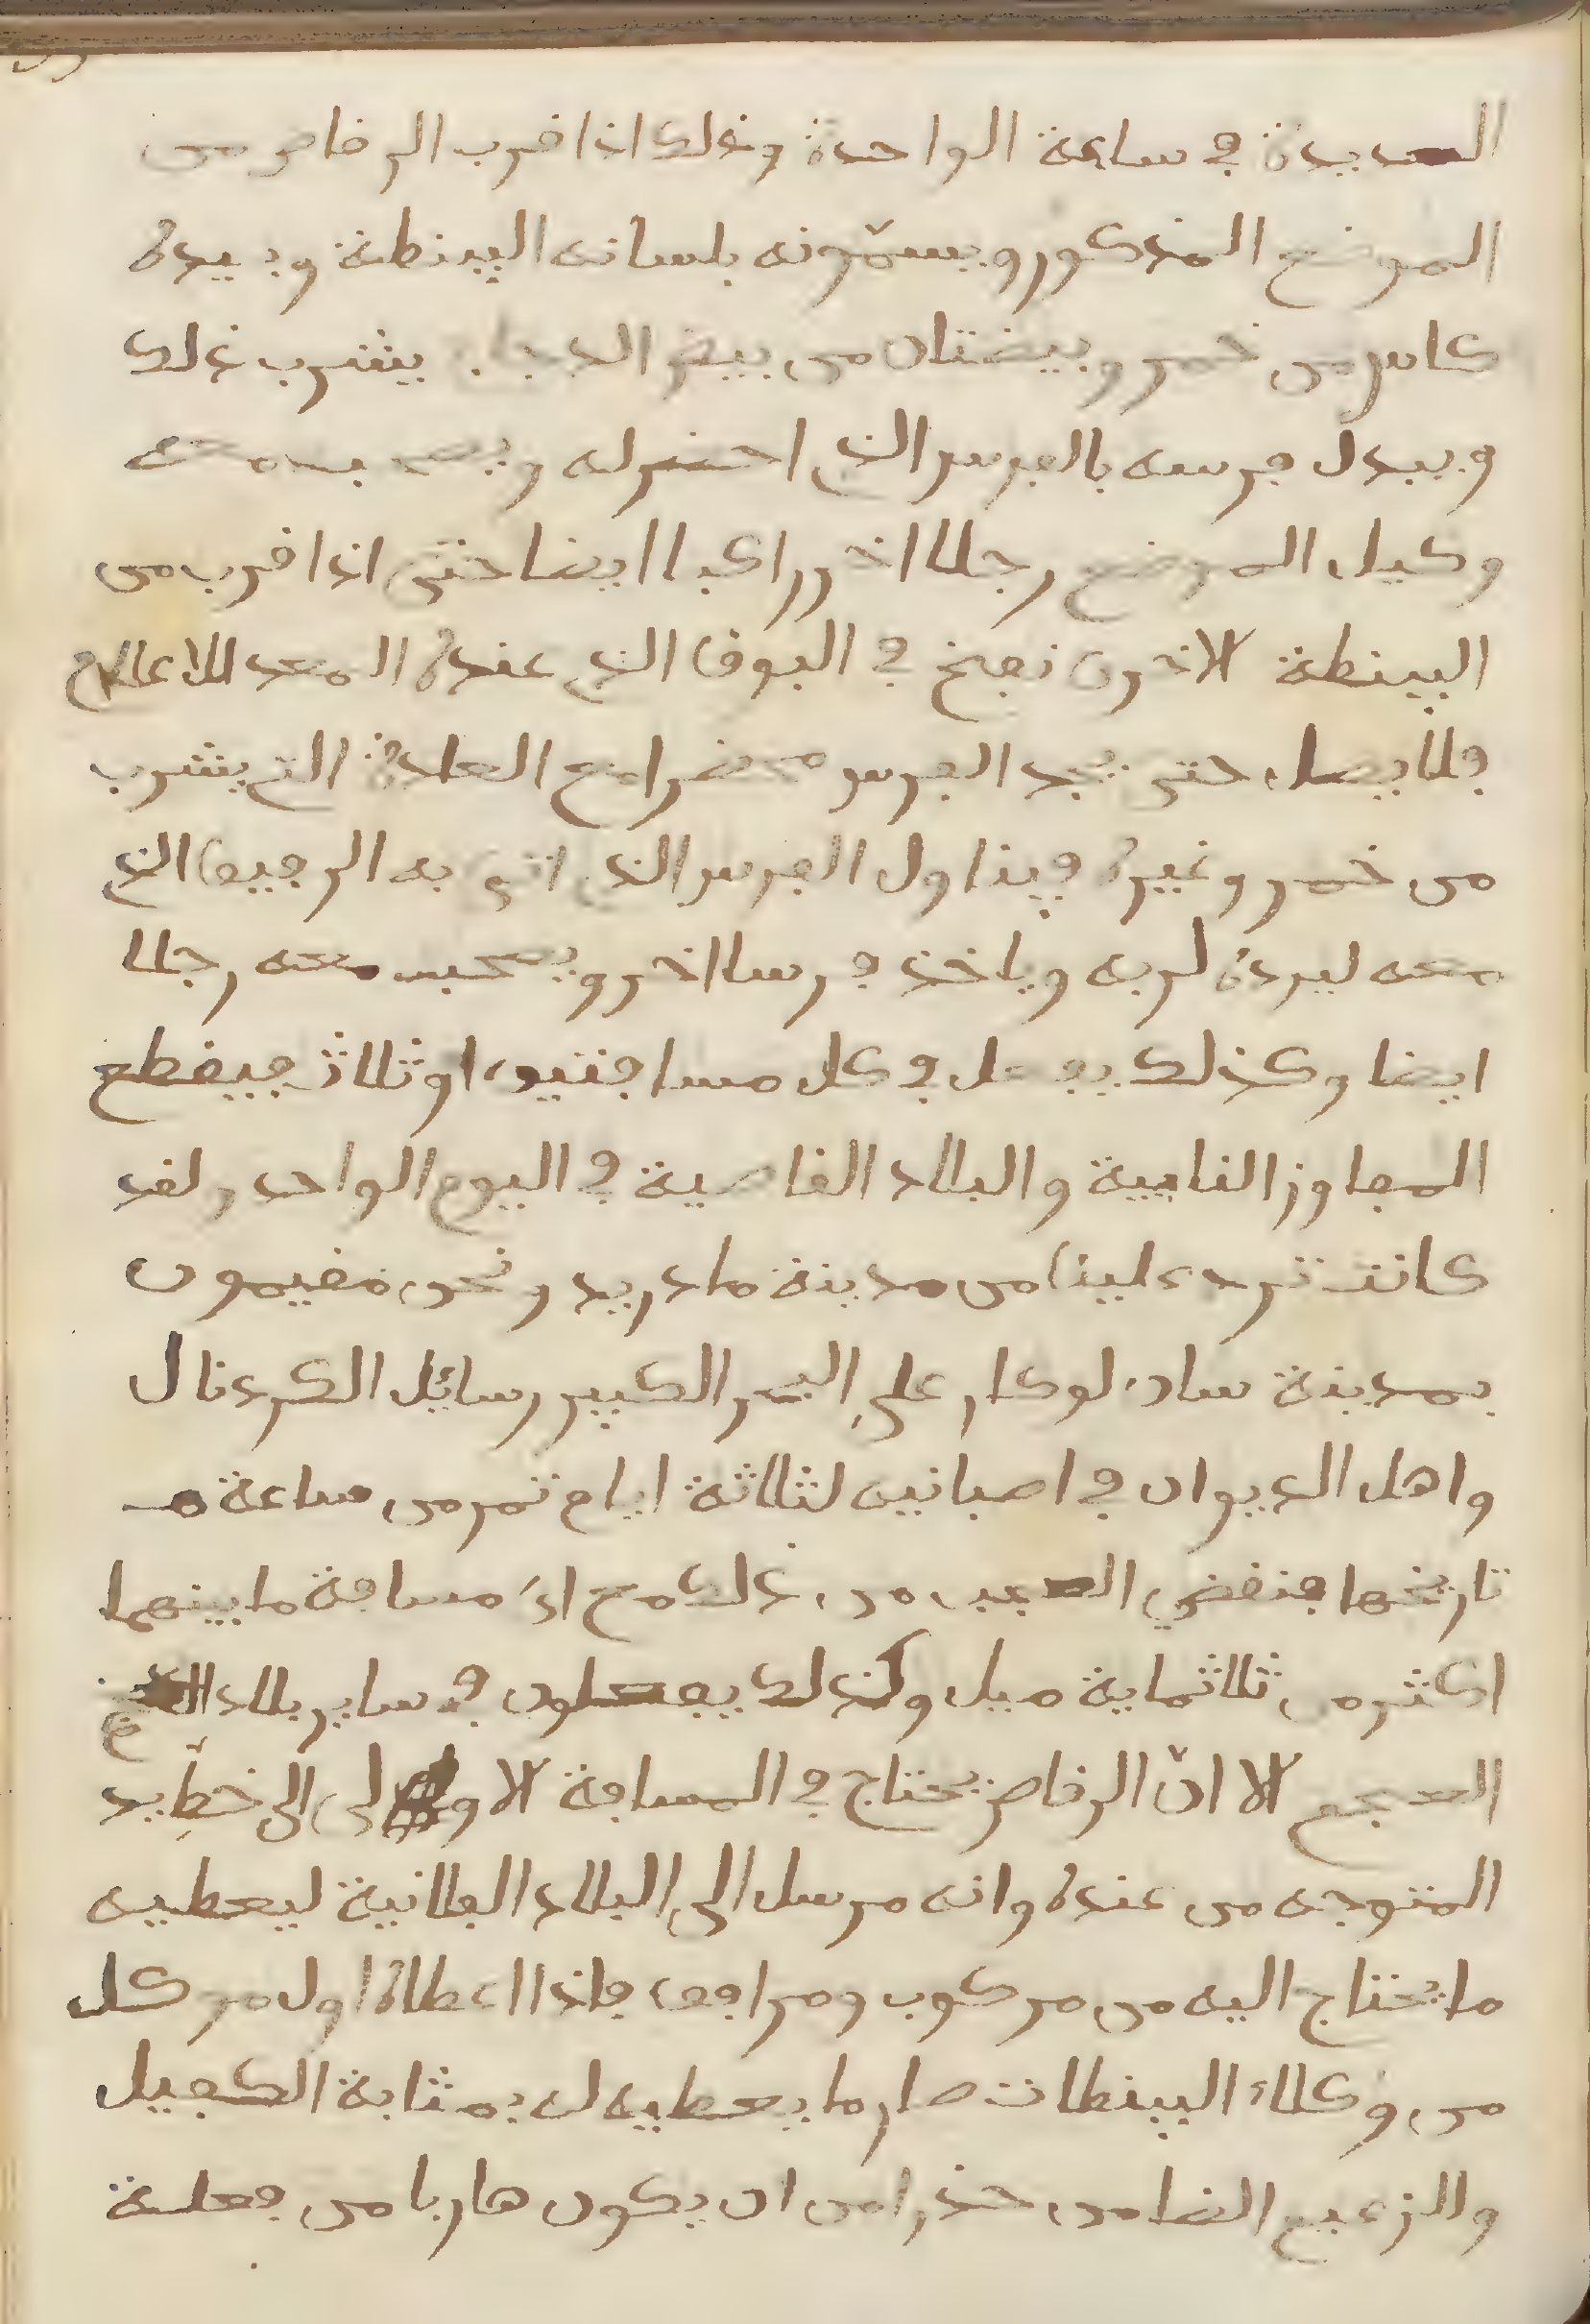 العديدة في ساعة الواحدة وذلك اذا قرب الرقاص من
الموضع المذكور ويسمّونه بلسانه البينطة وبيده
كاس من خمر وبيضتان من بيض الدجاج يشرب ذلك
ويبدل فرسه بالفرس الذي احضر له ويصحبه معه
وكيل الموضع رجلا اخر راكبا ايضا حتى اذا قرب من
البينطة الاخرى نفخ في البوق الذي عنده المعد للاعلام
فلا يصل حتى يجد الفرس محضرا مع العادة التي يشرب
من خمر وغيره فيناول الفرس الذي اتى به الرفيق الذي
معه ليرده لربه وياخذ فرسا اخر ويصحب معه رجلا
ايضا وكذلك يفعل في كل مسافتين او ثلاث فيقطع
المفاوز النايية والبلاد القاصية في اليوم الواحد ولقد
كانت ترد علينا من مدينة مادريد ونحن مقيمون
بمدينة سان لوكار على البحر الكبير رسائل الكردنال
واهل الديوان في اصبانيه لثلاثة ايام تمر من ساعة
تاريخها فنقضي العجب من ذلك مع انّ مسافة ما بينهما
اكثر من ثلاثماية ميل وكذلك يفعلون في ساير بلاد
العجم الا انّ الرقاص يحتاج في المسافة الاولى الى خطِّ يد
المتوجه من عنده وانه مرسل الى البلاد الفلانية ليعطيه
ما يحتاج اليه من مركوب ومرافق فاذا اعطاه اول من كل
من وكلاء البينطات صار ما يعطيه له بمثابة الكفيل
والزعيم الضامن حذرا من ان يكون هاربا من فعلة